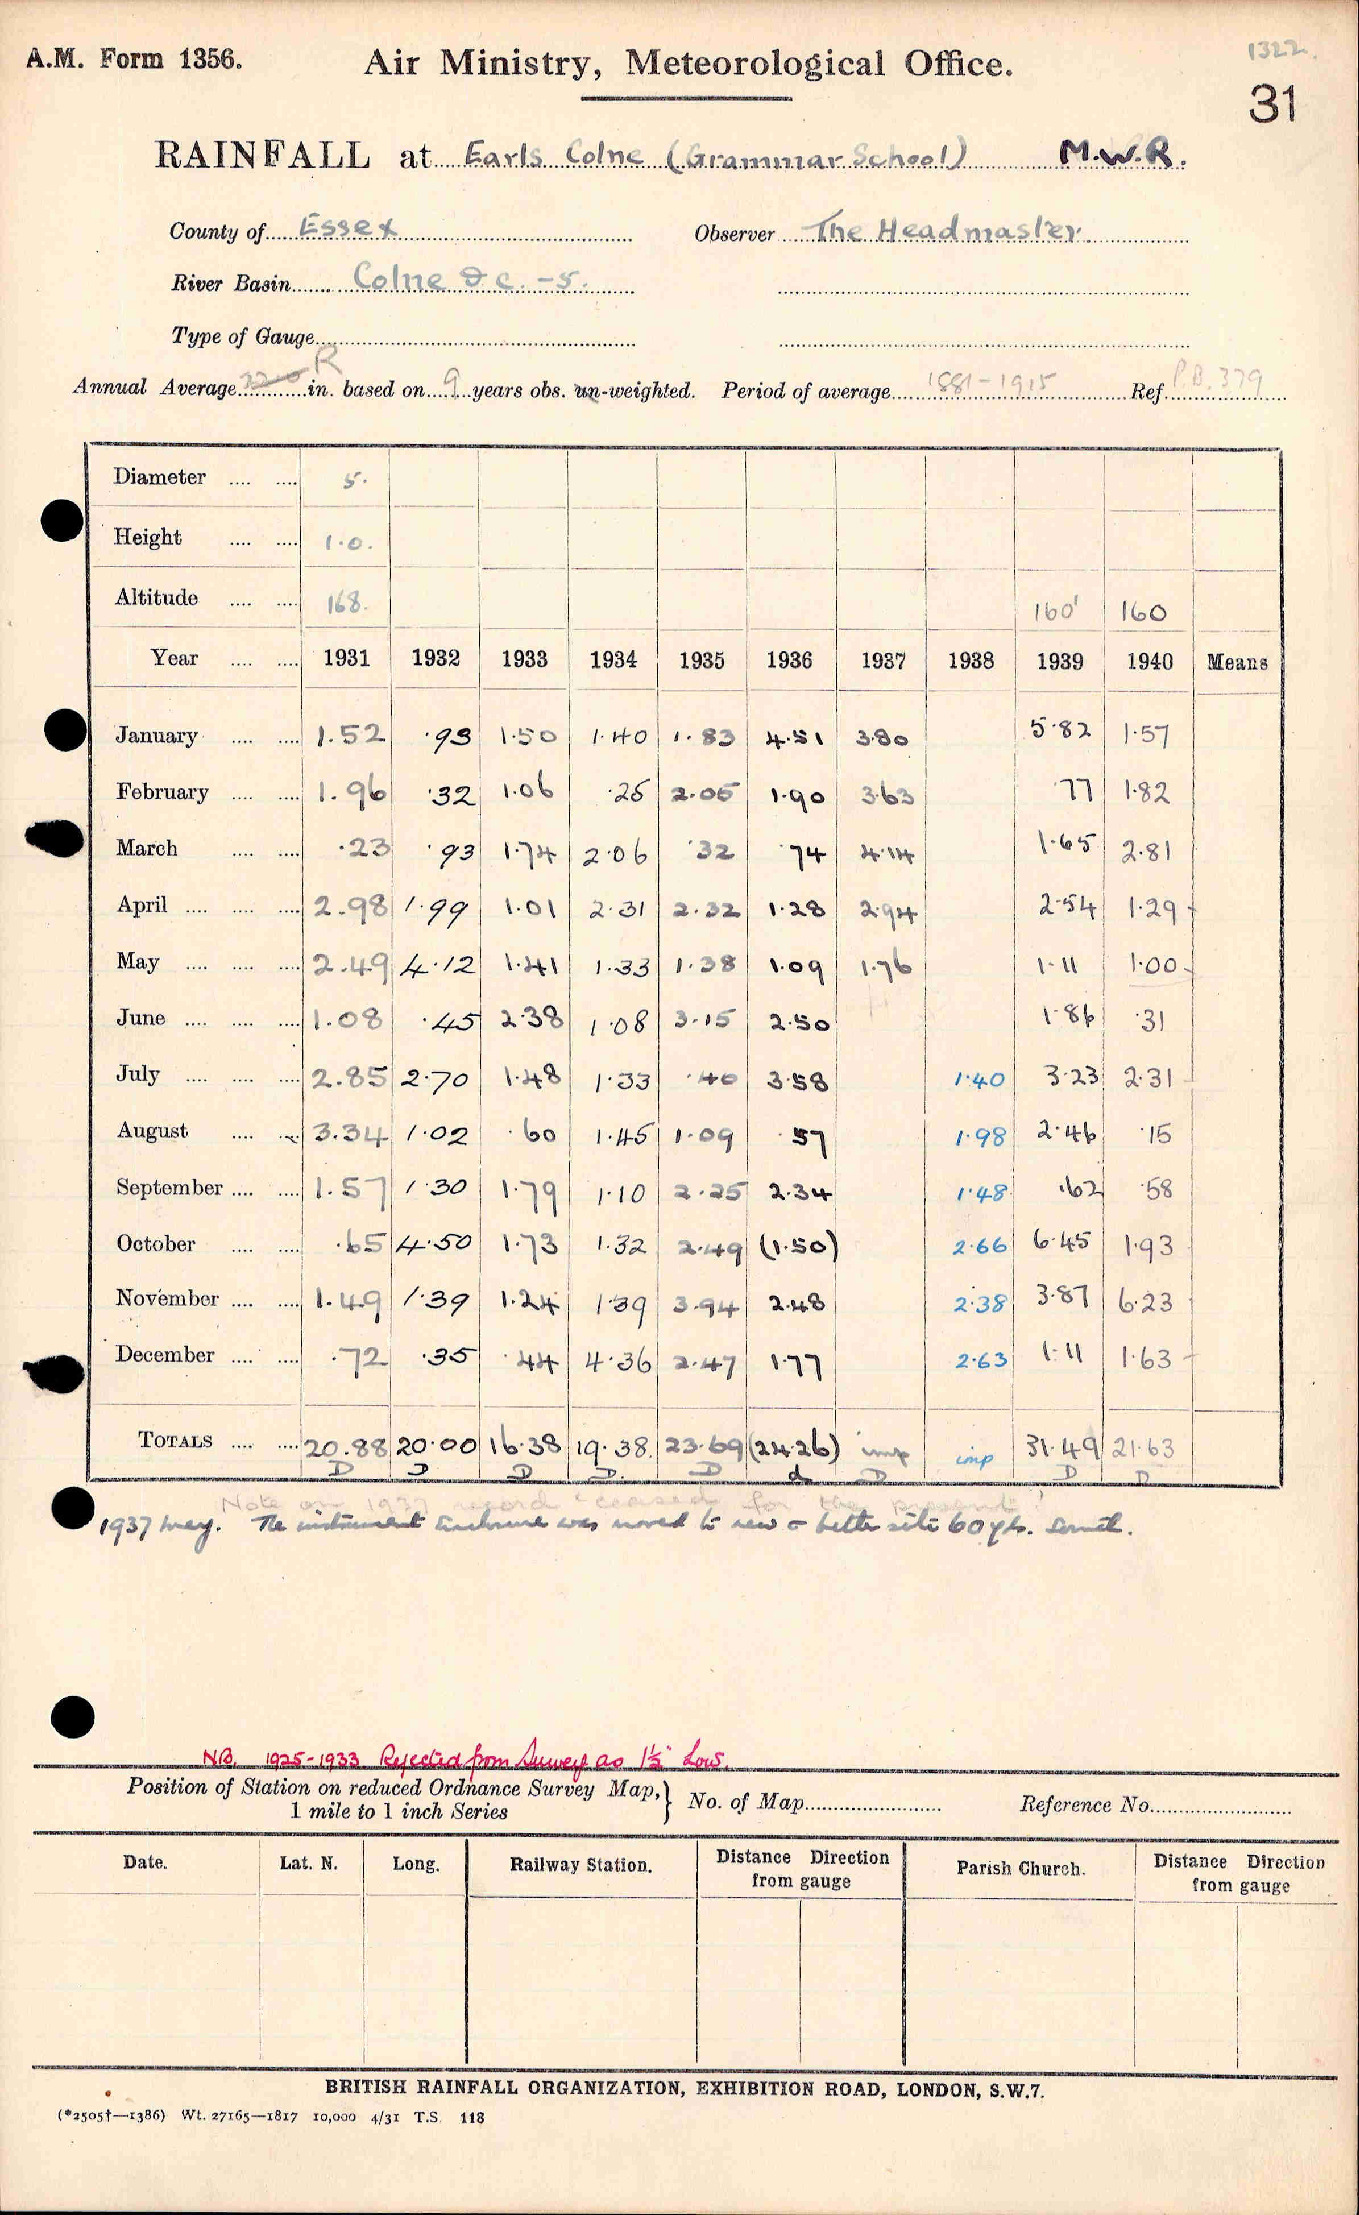 1322.
A.M. Form 1356. Air Ministry, Meteorological Office.
31
RAINFALL at Earls Colne (Grammar School) M.W.R.
County of Essex Observer The Headmaster.
River Basin Colne &c. -5.
Type of Gauge
R
Annual Average in. based on 9 years obs. un-weighted. Period of average 1881-1915 Ref P.B. 379
Diameter .... .... 5.
Height .... .... 1.0.
Altitude .... .... 168. 160' 160
Year .... .... 1931 1932 1933 1934 1935 1936 1937 1938 1939 1940 Means
January .... .... 1.52 .93 1.50 1.40 1.83 4.51 3.80 5.82 1.57
February .... .... 1.96 .32 1.06 .25 2.05 1.90 3.63 .77 1.82
March .... .... .23 .93 1.74 2.06 .32 .74 4.14 1.65 2.81
April .... .... .... 2.98 1.99 1.01 2.31 2.32 1.28 2.94 2.54 1.29
May .... .... .... 2.49 4.12 1.41 1.33 1.38 1.09 1.76 1.11 1.00
June .... .... .... 1.08 .45 2.38 1.08 3.15 2.50 1.86 .31
July .... .... .... 2.85 2.70 1.48 1.33 .40 3.58 1.40 3.23 2.31
August .... .... 3.34 1.02 .60 1.45 1.09 .57 1.98 2.46 .15
September .... .... 1.57 1.30 1.79 1.10 2.25 2.34 1.48 .62 .58
October .... .... .65 4.50 1.73 1.32 2.49 (1.50) 2.66 6.45 1.93
November .... .... 1.49 1.39 1.24 1.39 3.94 2.48 2.38 3.87 6.23
December .... .... .72 .35 .44 4.36 2.47 1.77 2.63 1.11 1.63
TOTALS .... .... 20.88 20.00 16.38 19.38. 23.69 (24.26) imp imp 31.49 21.63
D D D D. D d D D D
Note on 1937 record "ceased for the present"
1937 May. The instrument enclosure was moved to new & better site 60 yds. South.
N.B. 1925-1933 Rejected from Survey as 1½" Low.
Position of Station on reduced Ordnance Survey Map,} No. of Map Reference No.
1 mile to 1 inch Series
Date. Lat. N. Long. Railway Station. Distance Direction from gauge Parish Church. Distance Direction from gauge
BRITISH RAINFALL ORGANIZATION, EXHIBITION ROAD, LONDON, S.W.7.
(*2505†—1386) Wt. 27165—1817 10,000 4/31 T.S. 118